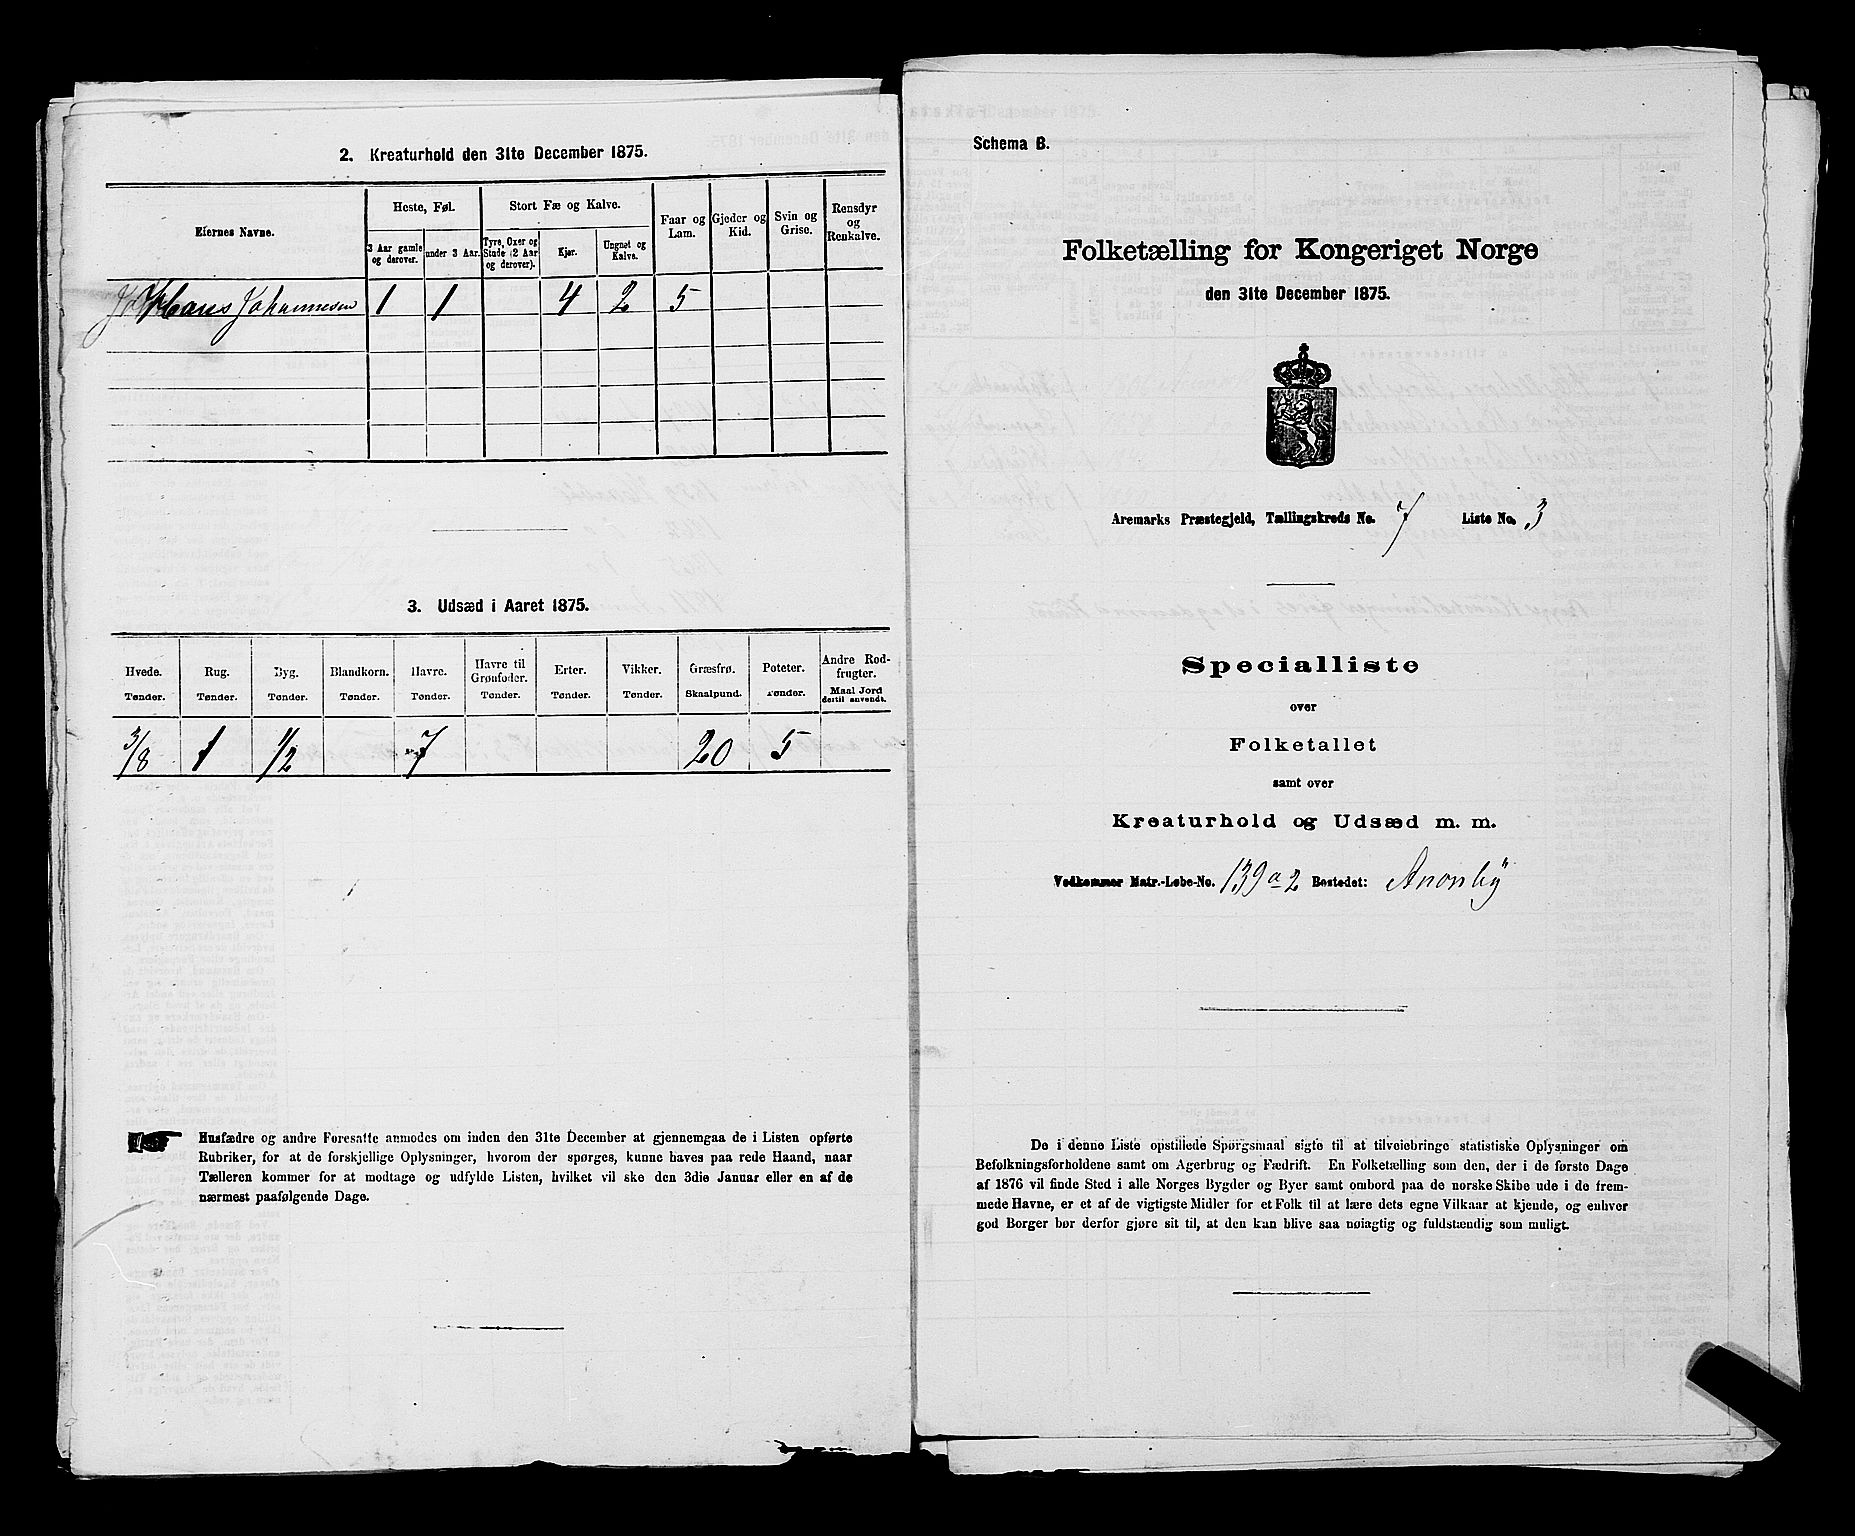 2. Kreaturhold den 31te December 1875.
Eiernes Navne.
Heste, Føl.
Stort Fæ og Kalve.
Faar og Lam.
Gjeder og Kid.
Svin og Grise.
Rensdyr og Renkalve.
3 Aar gamle og derover.
under 3 Aar.
Tyre, Oxer og Stude (2 Aar og derover).
Kjør.
Ungnøt og Kalve.
Hans Johannesen 1 1 4 2 5
3. Udsæd i Aaret 1875.
Hvede. Rug. Byg. Blandkorn. Havre. Havre til Grønfoder. Erter. Vikker. Græsfrø. Poteter. Andre Rodfrugter.
Tønder. Tønder. Tønder. Tønder. Tønder. Tønder. Tønder. Tønder. Skaalpund. Tønder. Maal Jord dertil anvendt.
3/8 1 1/2 7 20 5
Husfædre og andre Foresatte anmodes om inden den 31te December at gjennemgaa de i Listen opførte
Rubriker, for at de forskjellige Oplysninger, hvorom der spørges, kunne haves paa rede Haand, naar
Tælleren kommer for at modtage og udfylde Listen, hvilket vil ske den 3die Januar eller en af de
nærmest paafølgende Dage.
Schema B.
Folketælling for Kongeriget Norge
den 31te December 1875.
Aremarks Præstegjeld, Tællingskreds No. 7 Liste No. 3
Specialliste
over
Folketallet
samt over
Kreaturhold og Udsæd m. m.
Vedkommer Matr.-Løbe-No. 139a2 Bostedet:
De i denne Liste opstillede Spørgsmaal sigte til at tilveiebringe statistiske Oplysninger om
Befolkningsforholdene samt om Agerbrug og Fædrift. En Folketælling som den, der i de første Dage
af 1876 vil finde Sted i alle Norges Bygder og Byer samt ombord paa de norske Skibe ude i de frem-
mede Havne, er et af de vigtigste Midler for et Folk til at lære dets egne Vilkaar at kjende, og enhver
god Borger bør derfor gjøre sit til, at den kan blive saa nøiagtig og fuldstændig som muligt.